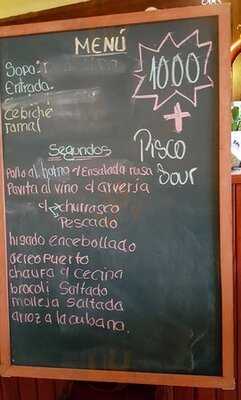 MENÚ
Sopa:
Entrado.
Cebiche
Tamal
1000
+
Pisco
Sour
Segundos
Pollo al horno c/Ensalada rusa
Pavita al vino c/arverja
c/churrasco
Pescado
higado encebollado
aeropuerto
chaufa c/cecina
brocoli Saltado
molleja Saltada
arroz a la cubana.